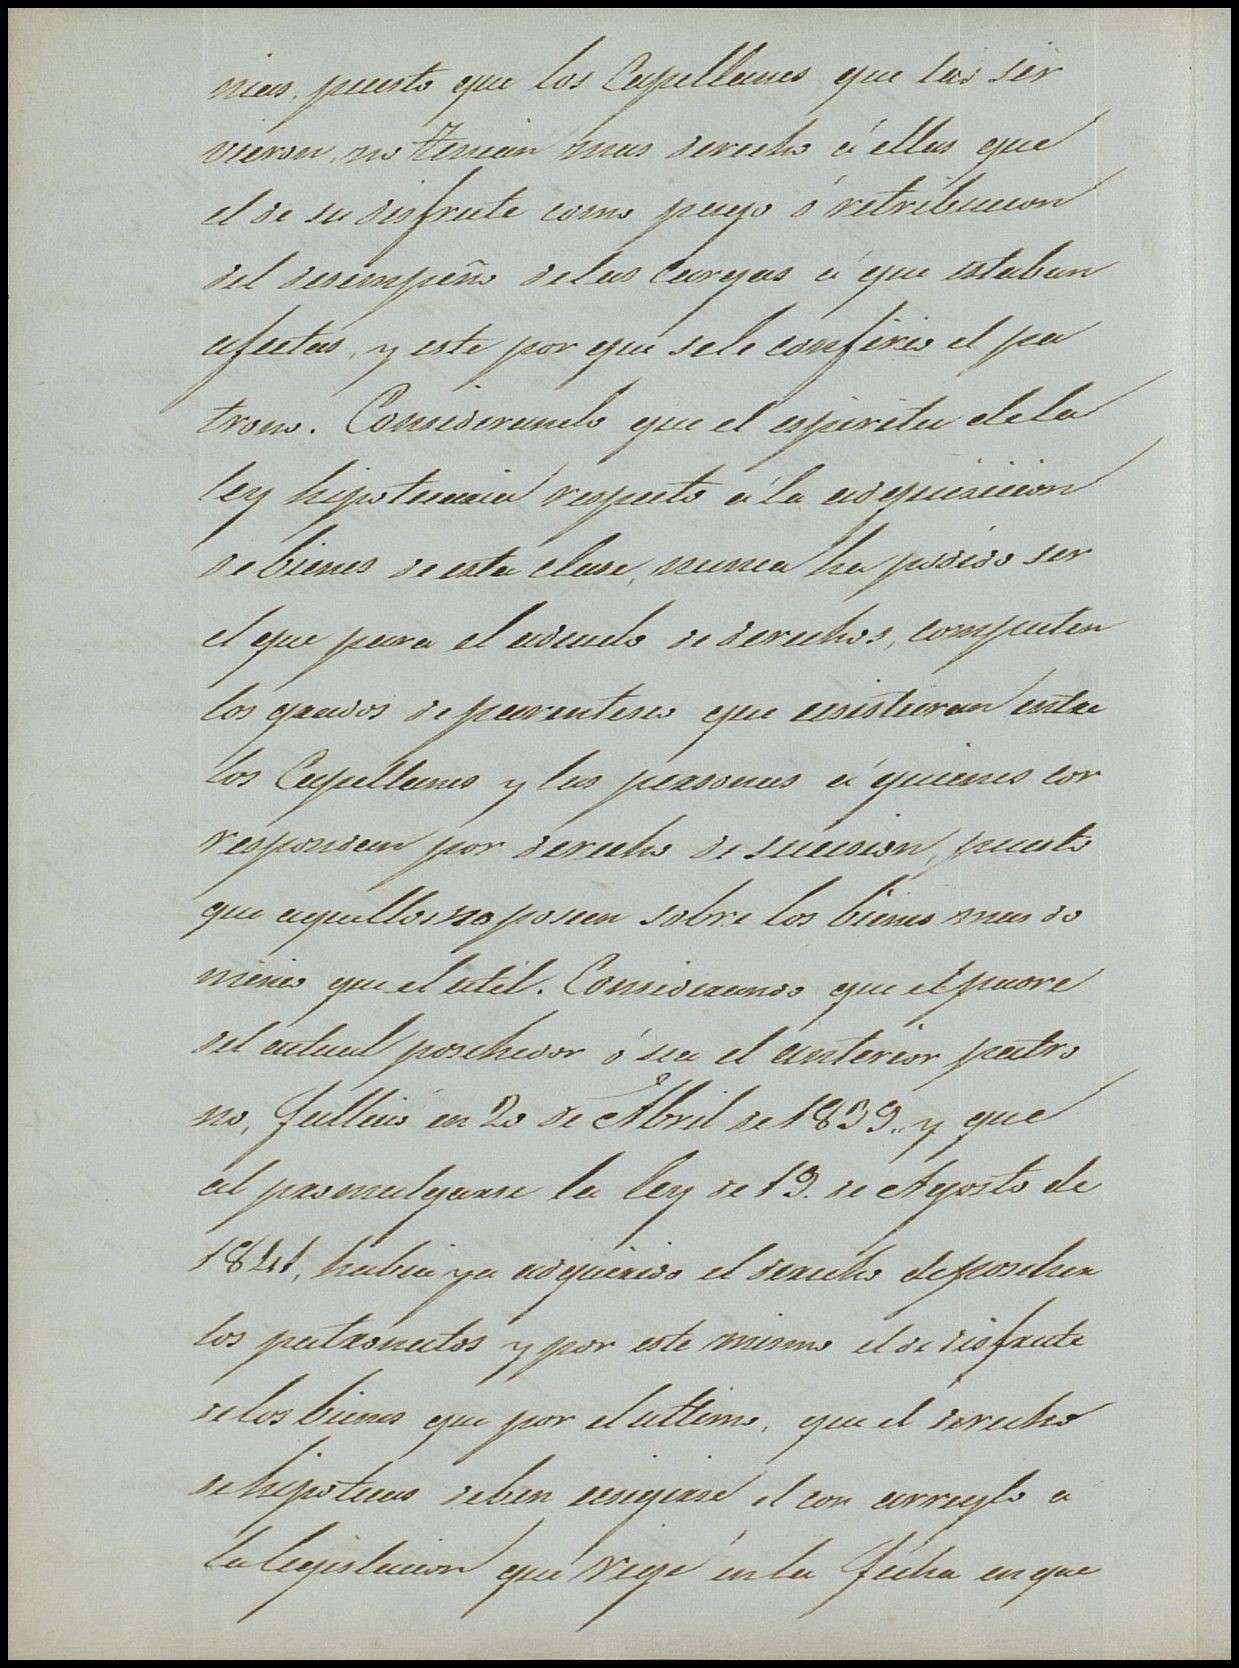 nias, puesto que los Capellanes que las ser
vieron, no tenian mas derecho á ellas que
el de su disfrute como pago ó retribucion
del desempeño de las cargas á que estaban
afectas, y este por que se le confirio el pa
trono. Considerando que el espiritu de la
ley hipotecaria respecto á la adquisicion
de bienes de esta clase, nunca ha podido ser
el que para el adeudo de derechos, computen
los grados de parentesco que ecsistieran entre
los Capellanes y las personas á quienes cor
respondan por derecho de sucesion, puesto
que aquellos no poseen sobre los bienes mas do
minio que el util. Considerando que el padre
del actual posehedor ó sea el anterior patro
no, fallecio en 20 de Abril de 1839, y que
al promulgarse la ley de 19. de Agosto de
1841, habia ya adquirido el derecho de poseher
los patronatos y por este mismo el de disfrute
de los bienes que por el ultimo, que el derecho
de hipotecas deben ecsigirse el con arreglo a
la legislacion que rige en la fecha en que